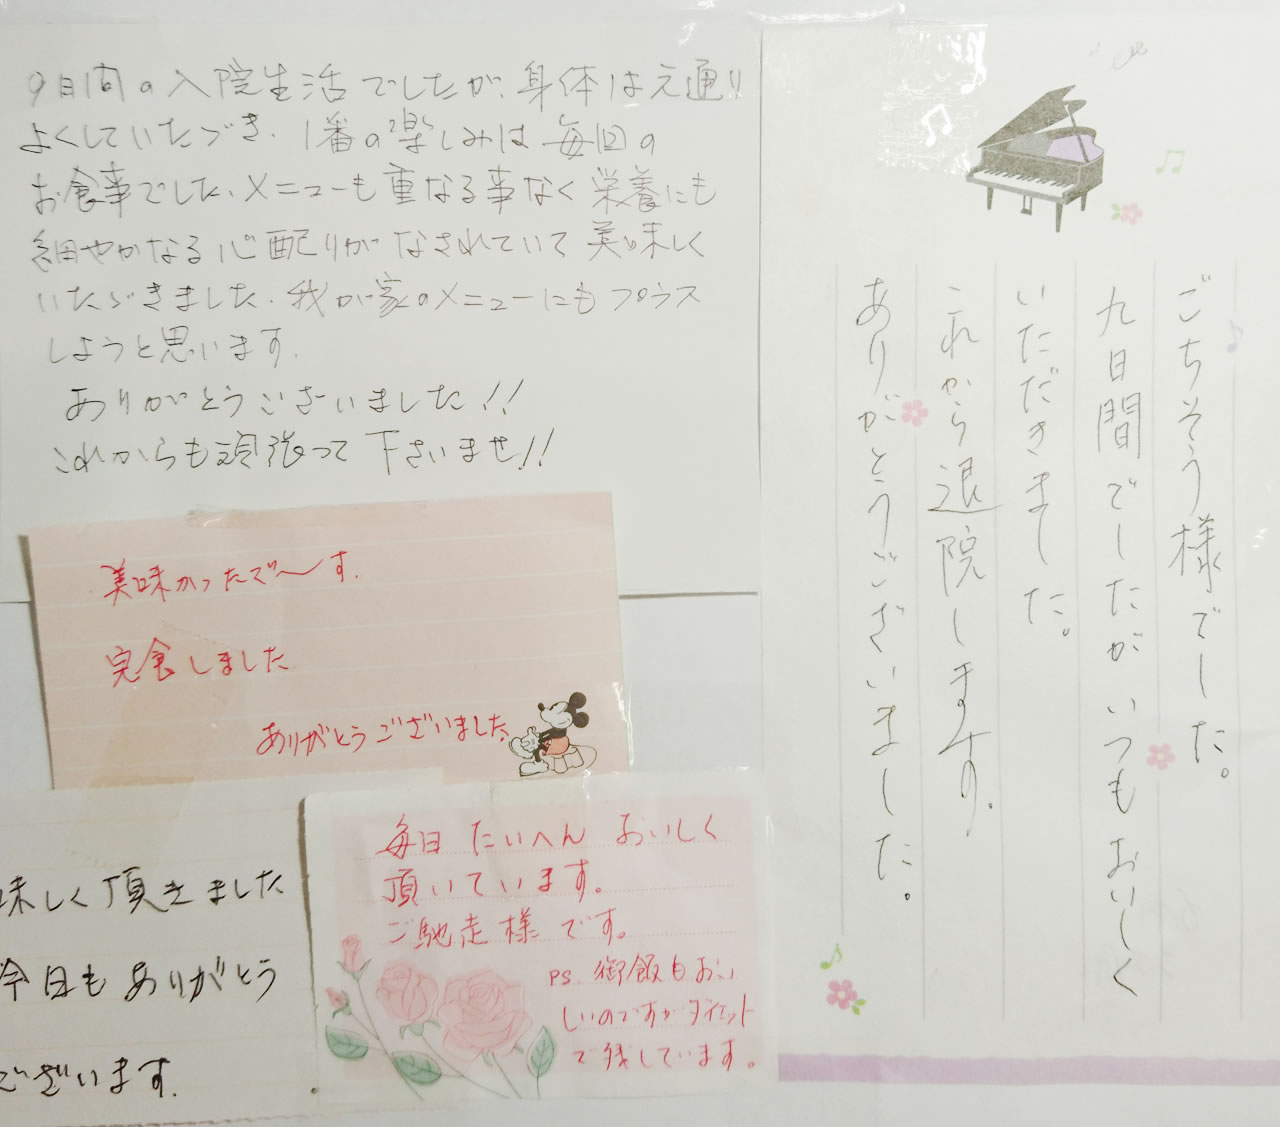 9日間の入院生活でしたが、身体は元通り
よくしていただき、1番の楽しみは毎回の
お食事でした、メニューも重なる事なく栄養にも
細やかなる心配りがなされていて美味しく
いただきました、我が家のメニューにもプラス
しようと思います。
ありがとうございました!!
これからも頑張って下さいませ!!
美味かったで〜す。
完食しました
ありがとうございました
味しく頂きました
今日もありがとう
ございます。
毎日たいへんおいしく
頂いています。
ご馳走様です。
PS. 御飯もおい
しいのですがダイエット
で残しています。
ごちそう様でした。
九日間でしたがいつもおいしく
いただきました。
これから退院します。
ありがとうございました。